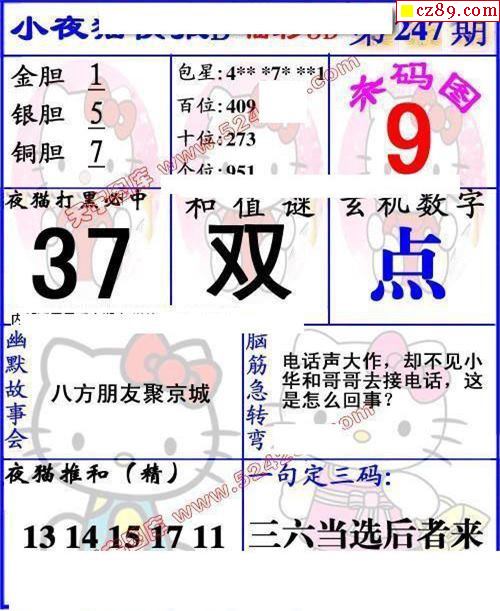 cz89.com
小夜猫
第247期
金胆 1
银胆 5
铜胆 7
包星:4** *7* **1
百位:409
十位:273
个位:951
杀码图
9
夜猫打黑必中
37
和值谜
双
玄机数字
点
幽默故事会
八方朋友聚京城
脑筋急转弯
电话声大作，却不见小
华和哥哥去接电话，这
是怎么回事？
夜猫推和（精）
13 14 15 17 11
一句定三码:
三六当选后者来